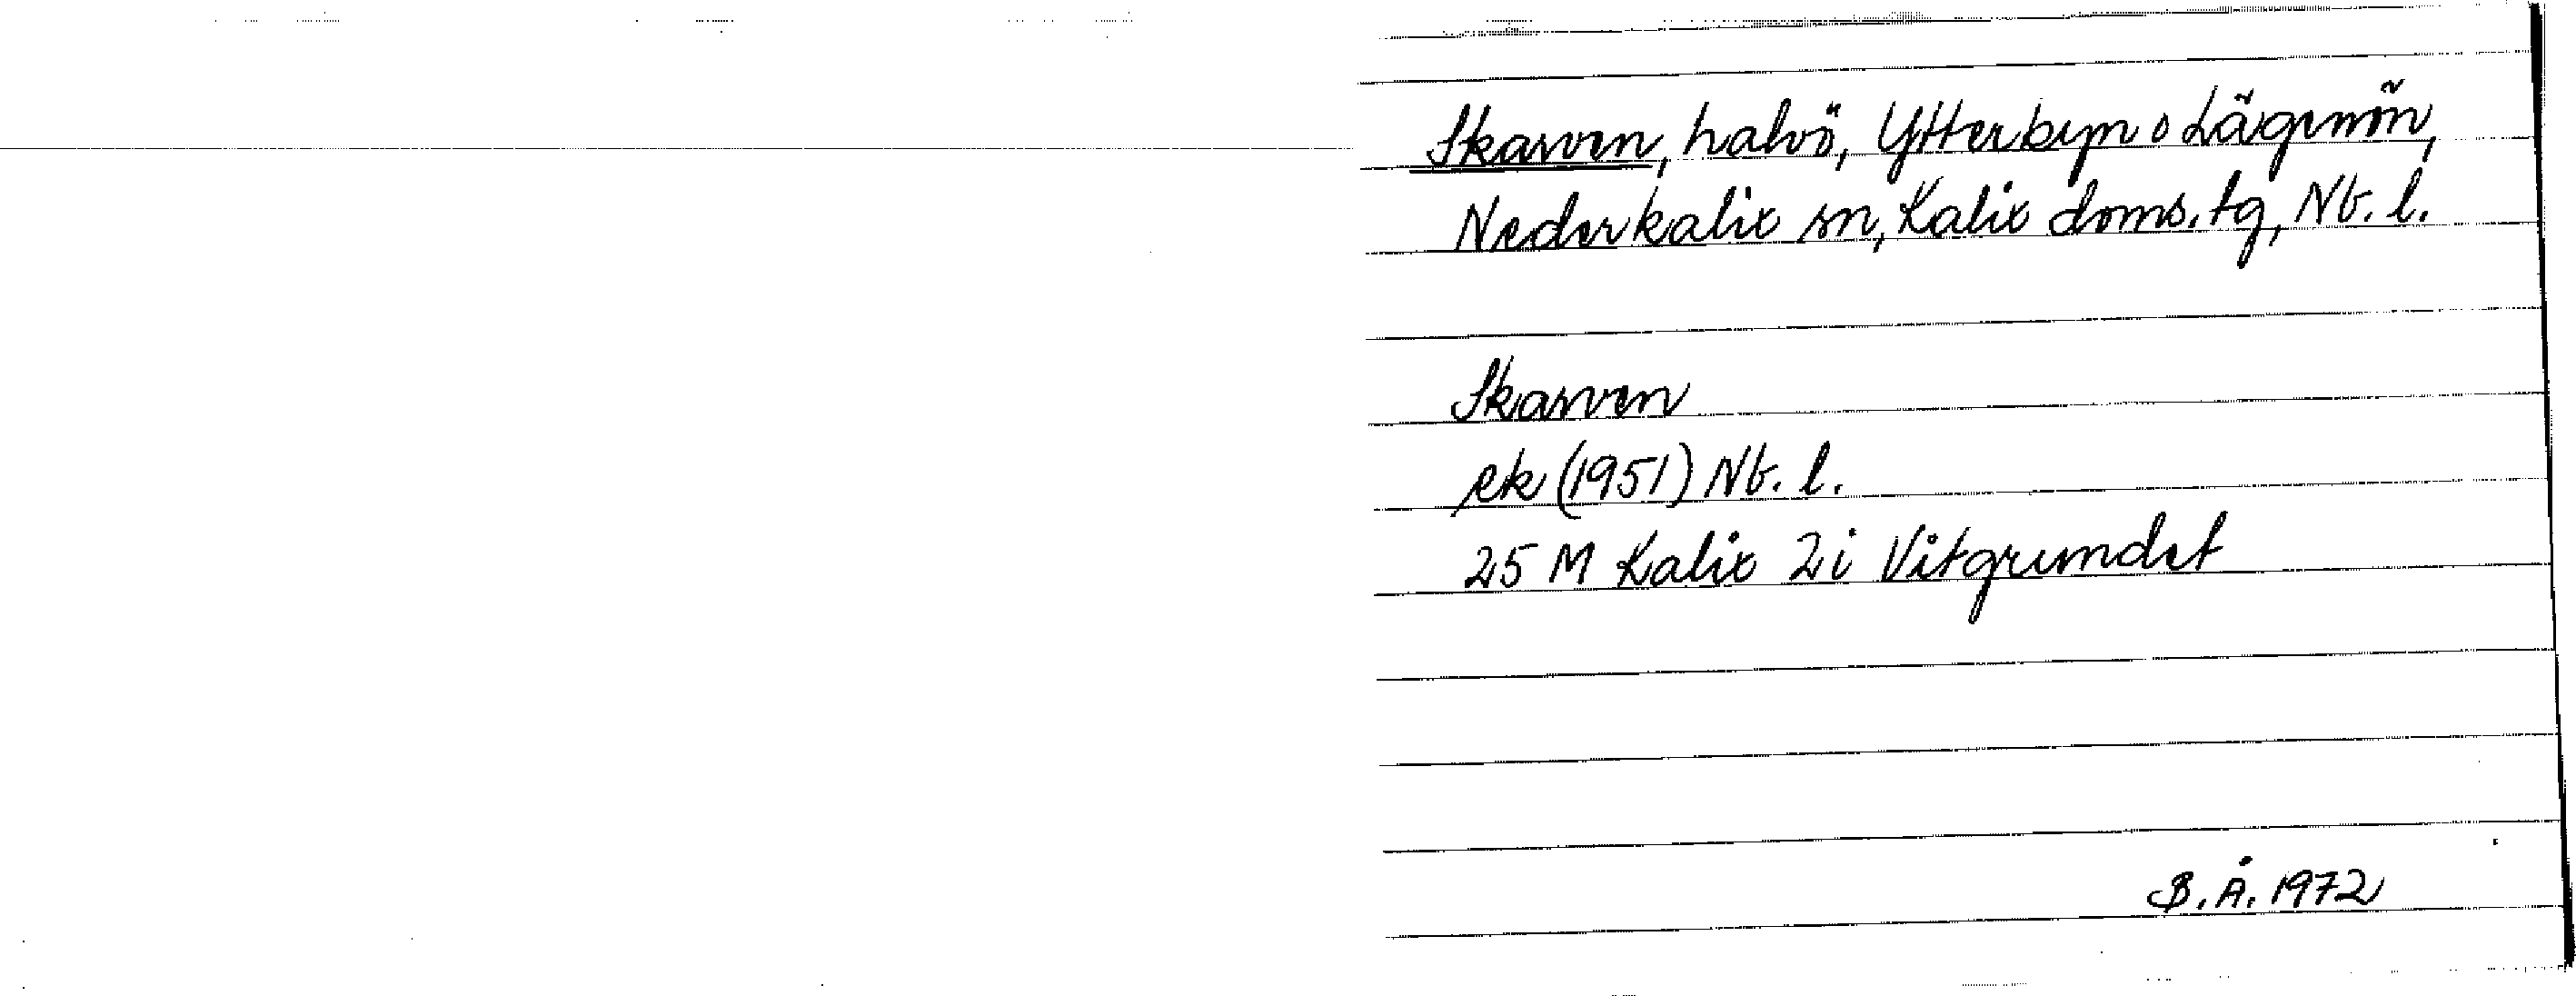 Skarven, halvö, Ytterbyn o Lägenön,
Nederkalix sn, Kalix doms. tg, Nb. l.
Skarven
ek (1951) Nb. l.
25 M Kalix 2i Vitgrundet
B. Å. 1972